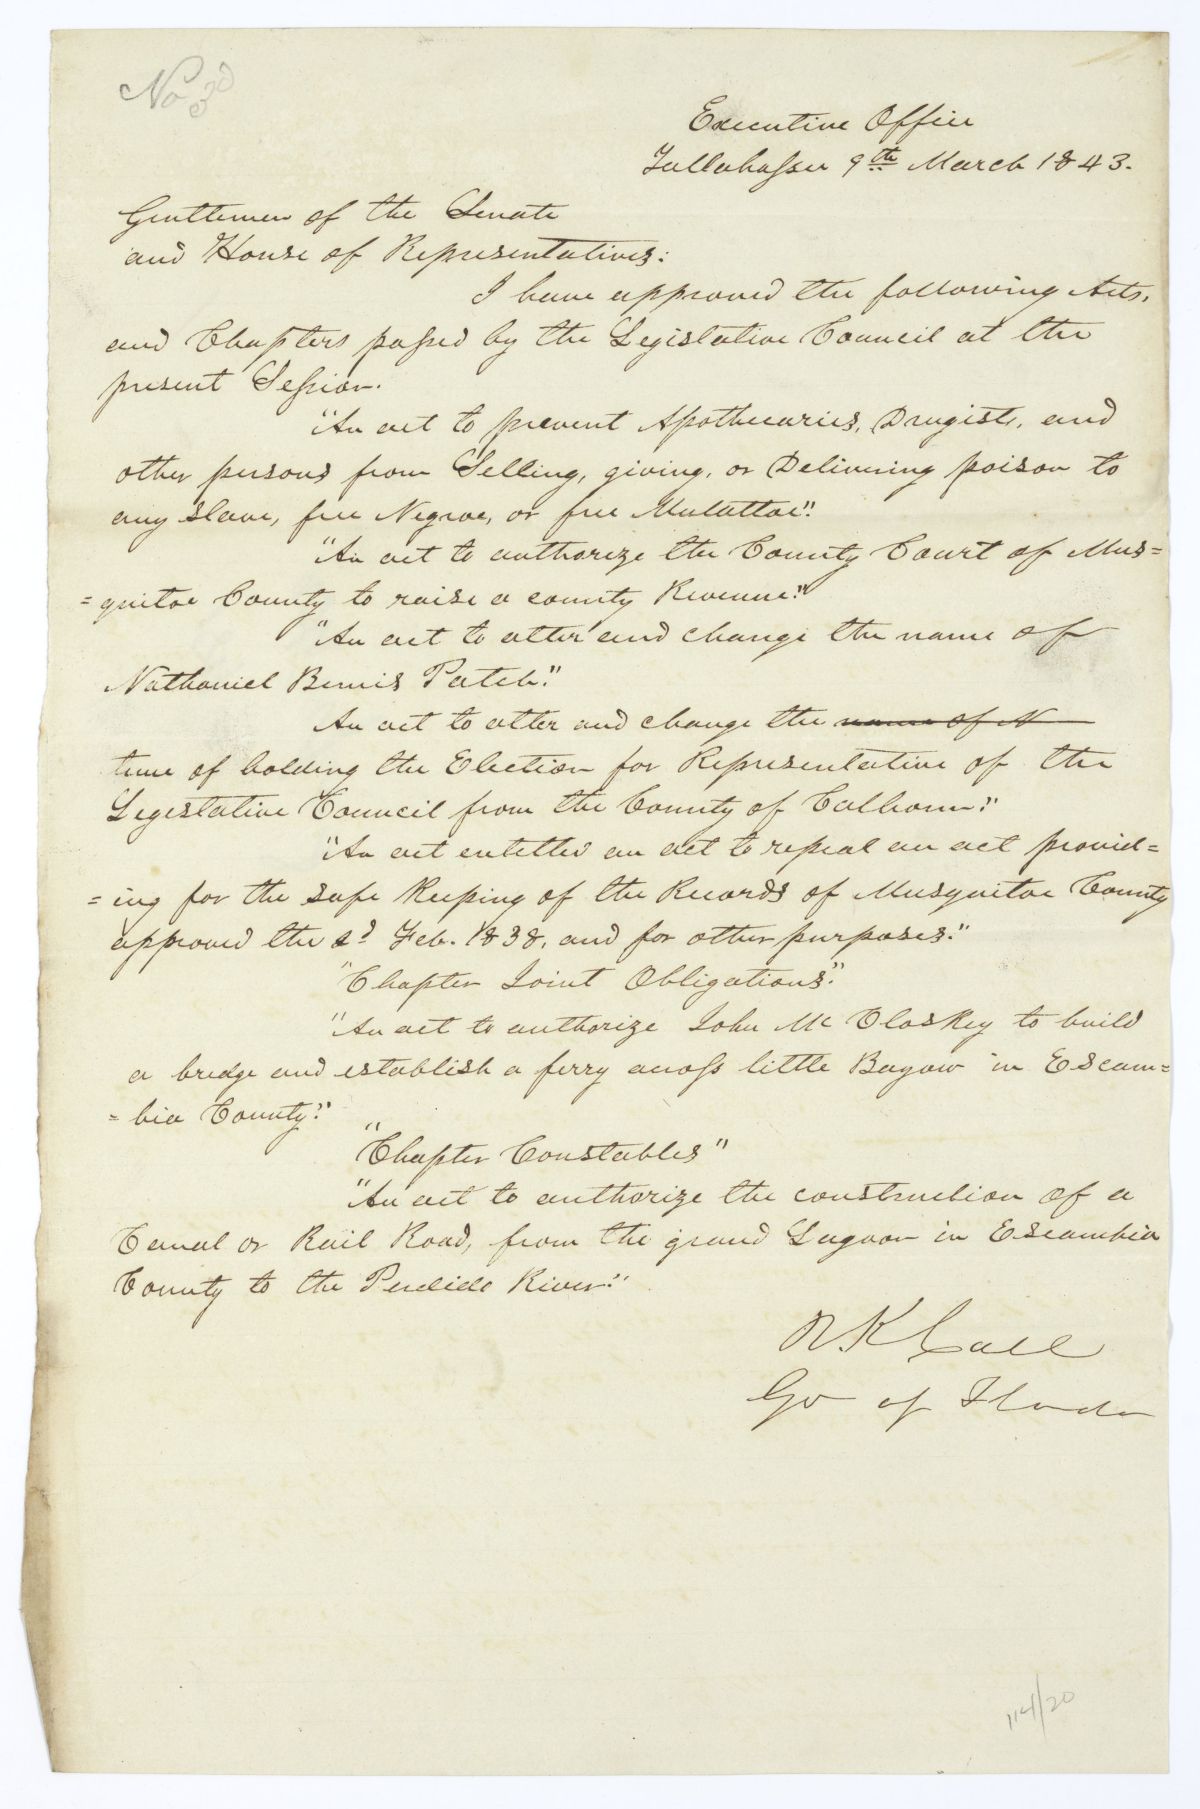 No 3d
Executive Office
Tallahassee 9th March 1843.
Gentlemen of the Senate
and House of Representatives:
I have approved the following Acts,
and Chapters passed by the Legislative Council at the
present Session.
"An act to prevent Apothecaries, Drugists, and
other persons from Selling, giving, or Delivering poison to
any slave, free Negroe, or free Mulattoe".
"An act to authorize the County Court of Mus=
=quitoe County to raise a county Revenue."
"An act to alter and change the name of
Nathaniel Bemis Patch."
An act to alter and change the name of N
time of holding the Election for Representative of the
Legestative Council from the County of Calhoun."
"An act entetted an act to repeal an act provid=
=ing for the safe keeping of the Records of Musquitoe County
approved the 2d Feb. 1838, and for other purposes."
"Chapter Joint Obligations".
"An act to authorize John Mc Closkey to build
a bredge and establish a ferry across little Bayow in Escam=
=bia County."
"Chapter Constables"
"An act to authorize the construction of a
Canal or Rail Road, from the grand Lagoon in Escambia
County to the Perdido River."
R. K. Call
Gov of Florida
114/20